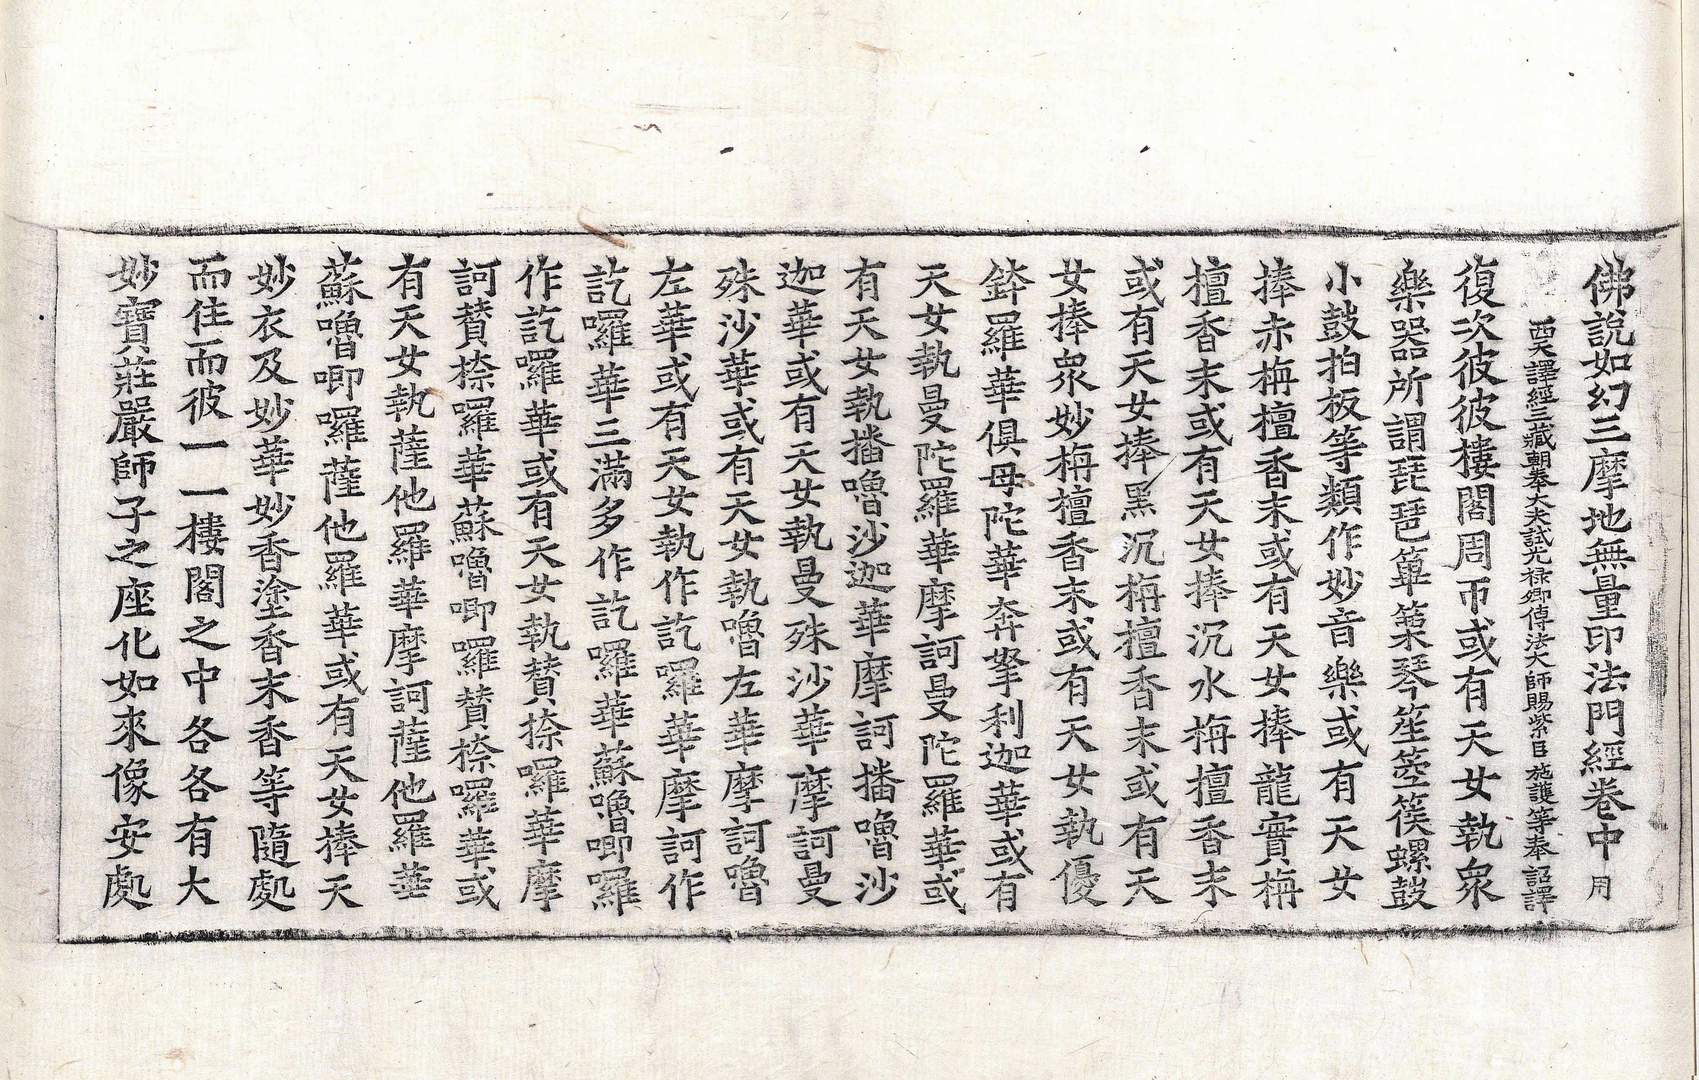 佛說如幻三摩地無量印法門經卷中 用
西天譯經三藏朝奉大夫試光祿卿傳法大師賜紫臣 施護等奉 詔譯
復次彼彼樓閣周帀或有天女執衆
樂器所謂琵琶篳篥琴笙箜篌螺鼓
小鼓拍板等類作妙音樂或有天女
捧赤栴檀香末或有天女捧龍實栴
檀香末或有天女捧沉水栴檀香末
或有天女捧黑沉栴檀香末或有天
女捧衆妙栴檀香末或有天女執優
鉢羅華俱母陀華奔拏利迦華或有
天女執曼陀羅華摩訶曼陀羅華或
有天女執播嚕沙迦華摩訶播嚕沙
迦華或有天女執曼殊沙華摩訶曼
殊沙華或有天女執嚕左華摩訶嚕
左華或有天女執作訖囉華摩訶作
訖囉華三滿多作訖囉華蘇嚕唧囉
作訖囉華或有天女執賛捺囉華摩
訶賛捺囉華蘇嚕唧囉賛捺囉華或
有天女執薩他羅華摩訶薩他羅華
蘇嚕唧囉薩他羅華或有天女捧天
妙衣及妙華妙香塗香末香等隨處
而住而彼一一樓閣之中各各有大
妙寶莊嚴師子之座化如來像安處